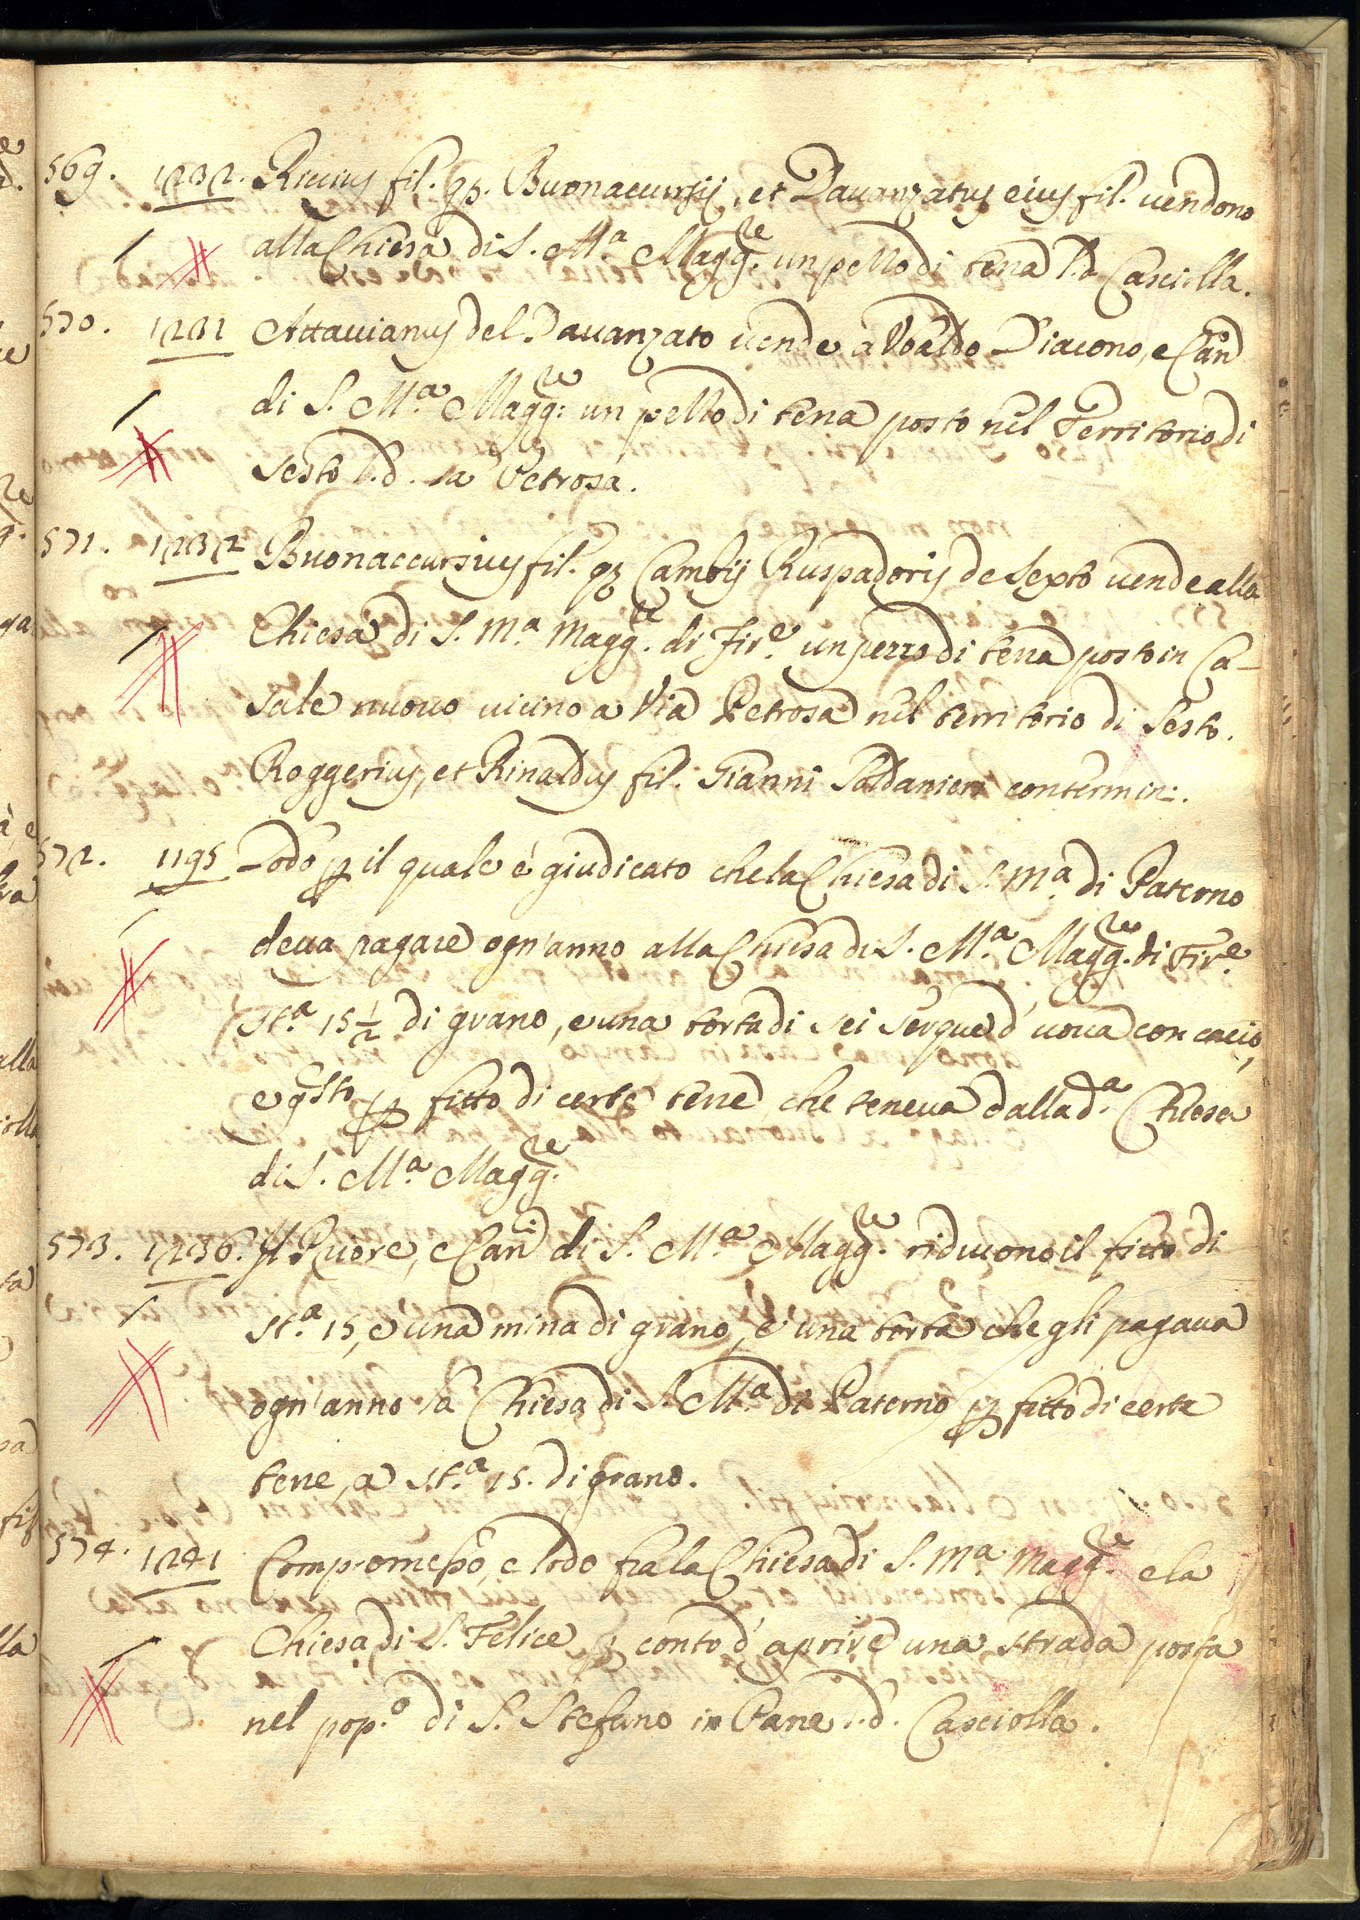 569. 1232. Riccius fil. qz. Buonaccursij, et Dauanzatus eius fil. uendono
alla Chiesa di S. Ma. Magg.re un pezzo di terra l.d. Casciolla.
570. 1231 Attauianus del Dauanzato uende a Ubaldo Diacono, e Can.o
di S. Ma. Magg.re un pezzo di terra posto nel Territorio di
Sesto l.d. la Petrosa.
571. 1232 Buonaccursius fil. qz Cambij Ruspadoris de Sexto uende alla
Chiesa di S. Ma. Magg.re di Fir.e un pezzo di terra posto in Ca-
sale nuouo uicino a Via Petrosa nel territorio di Sesto.
Roggerius, et Rinaldus fil. Gianni Soldanieri contermin:.
572. 1195 Lodo p il quale è giudicato che la Chiesa di S. Ma. di Paterno
deua pagare ogn'anno alla Chiesa di S. Ma. Magg.re di Fir.e
St.a 15 1/2 di grano, e una torta di sei serque d'uoua con cacio,
e q.sto p fitto di certe terre che teneua dalla d.a Chiesa
di S. Ma. Magg.re
573. 1236. Il Priore, e Can.i di S. Ma. Magg.re riducono il fitto di
st.a 15, e una mina di grano, e una torta che gli pagaua
ogn'anno la Chiesa di S. Ma. di Paterno p fitto di certe
terre, a st.a 15. di grano.
574. 1241 Compromesso, e lodo fra la Chiesa di S. Ma. Magg.re e la
Chiesa di S. Felice p conto d'aprire una strada posta
nel pop.o di S. Stefano in Pane l.d. Casciolla.